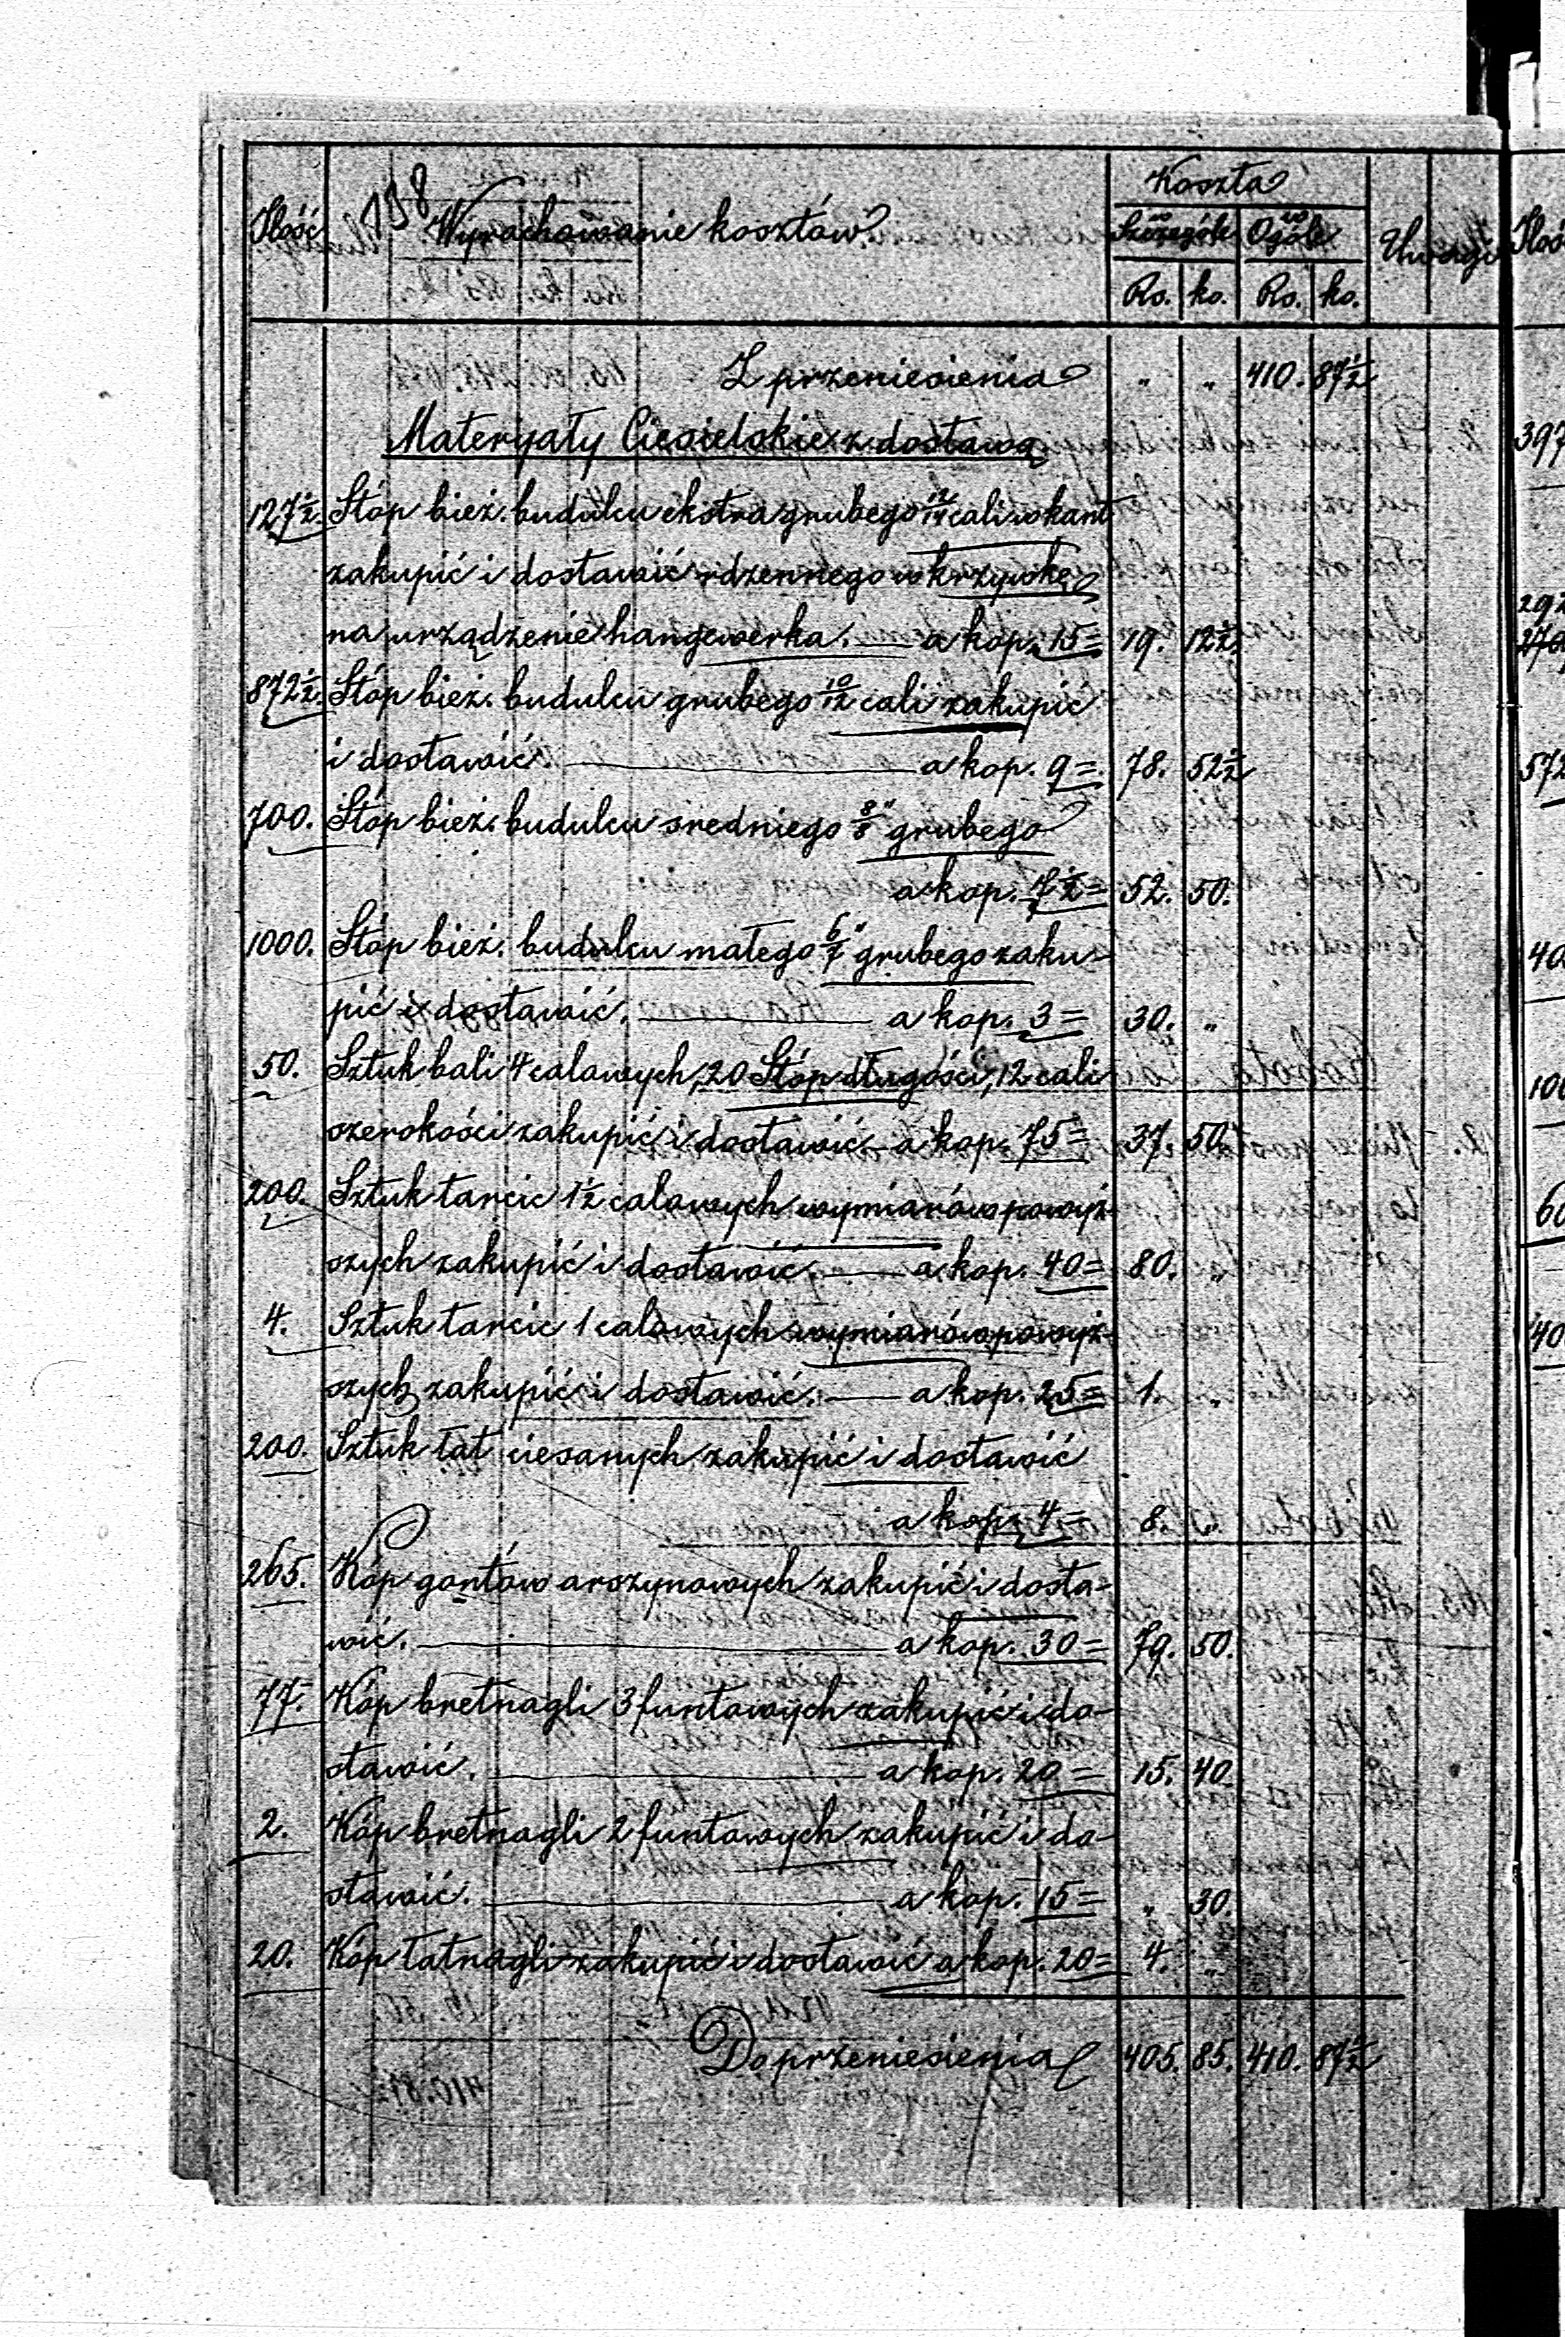 198
Koszta
Ilość Wyrachowanie kosztów w Szczególe w Ogóle Uwagi
Rs. ko. Rs. ko.
Z przeniesienia " " 410. 87½
Materyały Ciesielskie z dostawą
127½. Stóp bież. budulcu ekstra grubego 12/14 cali w kant
zakupić i dostawić rdzennego w krzywkę
na urządzenie hangewerka. — a kop. 15 = 19. 12½.
872½. Stóp bież. budulcu grubego 10/12 cali zakupić
i dostawić. — a kop. 9 = 78. 52½
700. Stóp bież. budulcu średniego 8/8" grubego
a kop. 7½ = 52. 50.
1000. Stóp bież. budulcu małego 6/7" grubego zaku-
pić i dostawić. — a kop. 3 = 30. "
50. Sztuk bali 4 calowych, 20 Stóp długości, 12 cali
szerokości zakupić i dostawić — a kop. 75 = 37. 50.
200. Sztuk tarcic 1½ calowych wymiarów powyż-
szych zakupić i dostawić. — a kop. 40 = 80. "
4. Sztuk tarcic 1 calowych wymiarów powyż-
szych zakupić i dostawić. — a kop. 25 = 1. "
200. Sztuk łat ciesanych zakupić i dostawić
a kop. 4 = 8. "
265. Kóp gontów arszynowych zakupić i dosta-
wić. — a kop. 30 = 79. 50.
77. Kóp bretnagli 3 funtowych zakupić i do-
stawić. — a kop. 20 = 15. 40.
2. Kóp bretnagli 2 funtowych zakupić i do-
stawić. — a kop. 15 = " 30.
20. Kop łatnagli zakupić i dostawić a kop. 20 = 4. "
Do przeniesienia 405. 85. 410. 87½